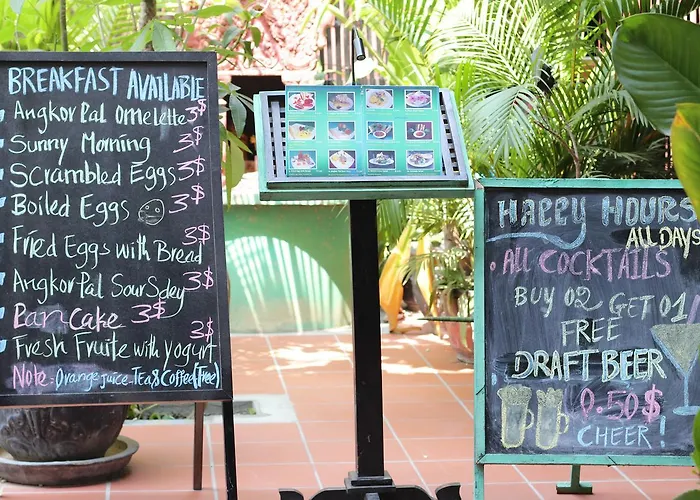 BREAKFAST AVAILABLE
AngkorPal Omelette 3$
Sunny Morning 3$
Scrambled Eggs 3$
Boiled Eggs 3$
Fried Eggs with Bread 3$
AngkorPal SourSdey 3$
Pancake 3$
Fresh Fruite with yogurt 3$
Note: Orange juice. Tea & Coffee (Free)
HAPPY HOURS
ALL DAYS
ALL COCKTAILS
BUY 02 GET 01
FREE
DRAFT BEER
0.50$
CHEER!